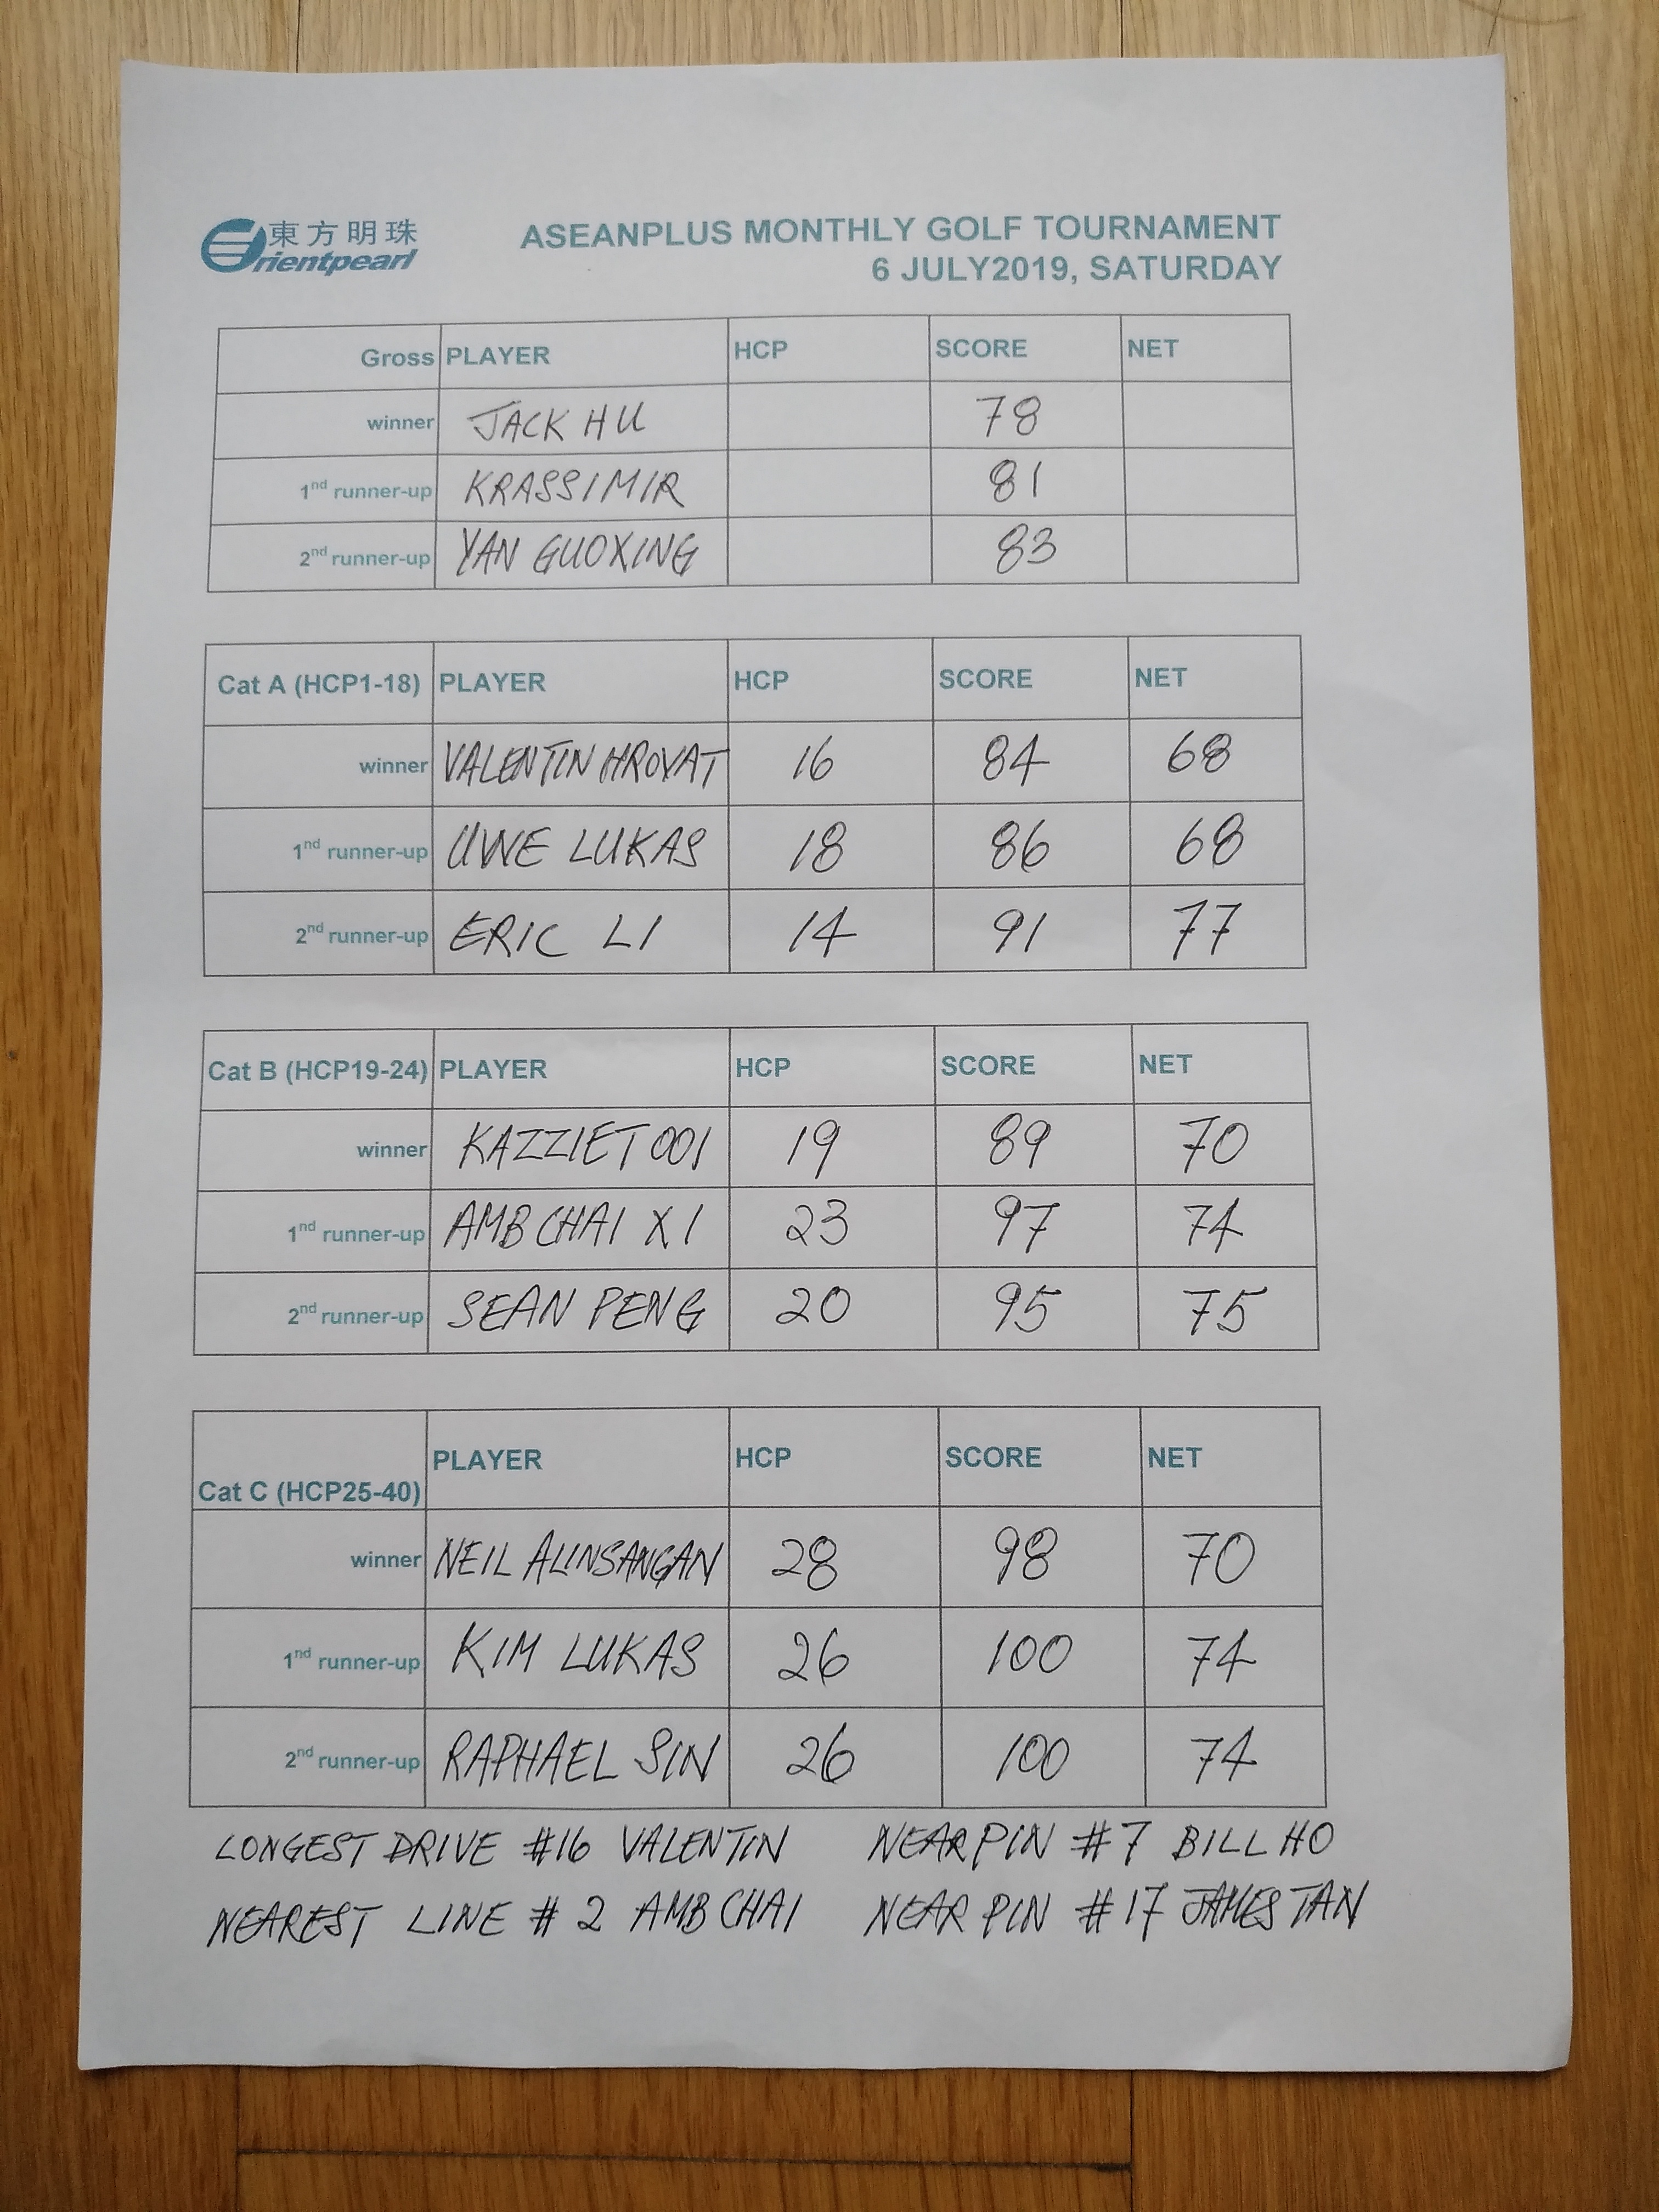 東方明珠
Orientpearl
ASEANPLUS MONTHLY GOLF TOURNAMENT
6 JULY2019, SATURDAY
Gross PLAYER HCP SCORE NET
winner JACK HU 78
1nd runner-up KRASSIMIR 81
2nd runner-up YAN GUOXING 83
Cat A (HCP1-18) PLAYER HCP SCORE NET
winner VALENTIN HROVAT 16 84 68
1nd runner-up UWE LUKAS 18 86 68
2nd runner-up ERIC LI 14 91 77
Cat B (HCP19-24) PLAYER HCP SCORE NET
winner KAZZIET 001 19 89 70
1nd runner-up AMB CHAI XI 23 97 74
2nd runner-up SEAN PENG 20 95 75
Cat C (HCP25-40) PLAYER HCP SCORE NET
winner NEIL ALINSANGAN 28 98 70
1nd runner-up KIM LUKAS 26 100 74
2nd runner-up RAPHAEL SIN 26 100 74
LONGEST DRIVE #16 VALENTIN NEAR PIN #7 BILL HO
NEAREST LINE #2 AMB CHAI NEAR PIN #17 JAMES TAN